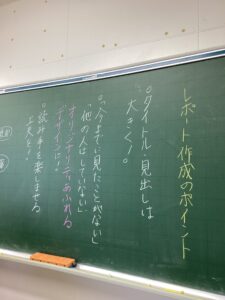 レポート作成のポイント
○タイトル・見出しは
大きく!
○「今までに見たことがない」
「他の人はしていない」
オリジナリティあふれる
デザインに!
○読み手を楽しませる
工夫を!